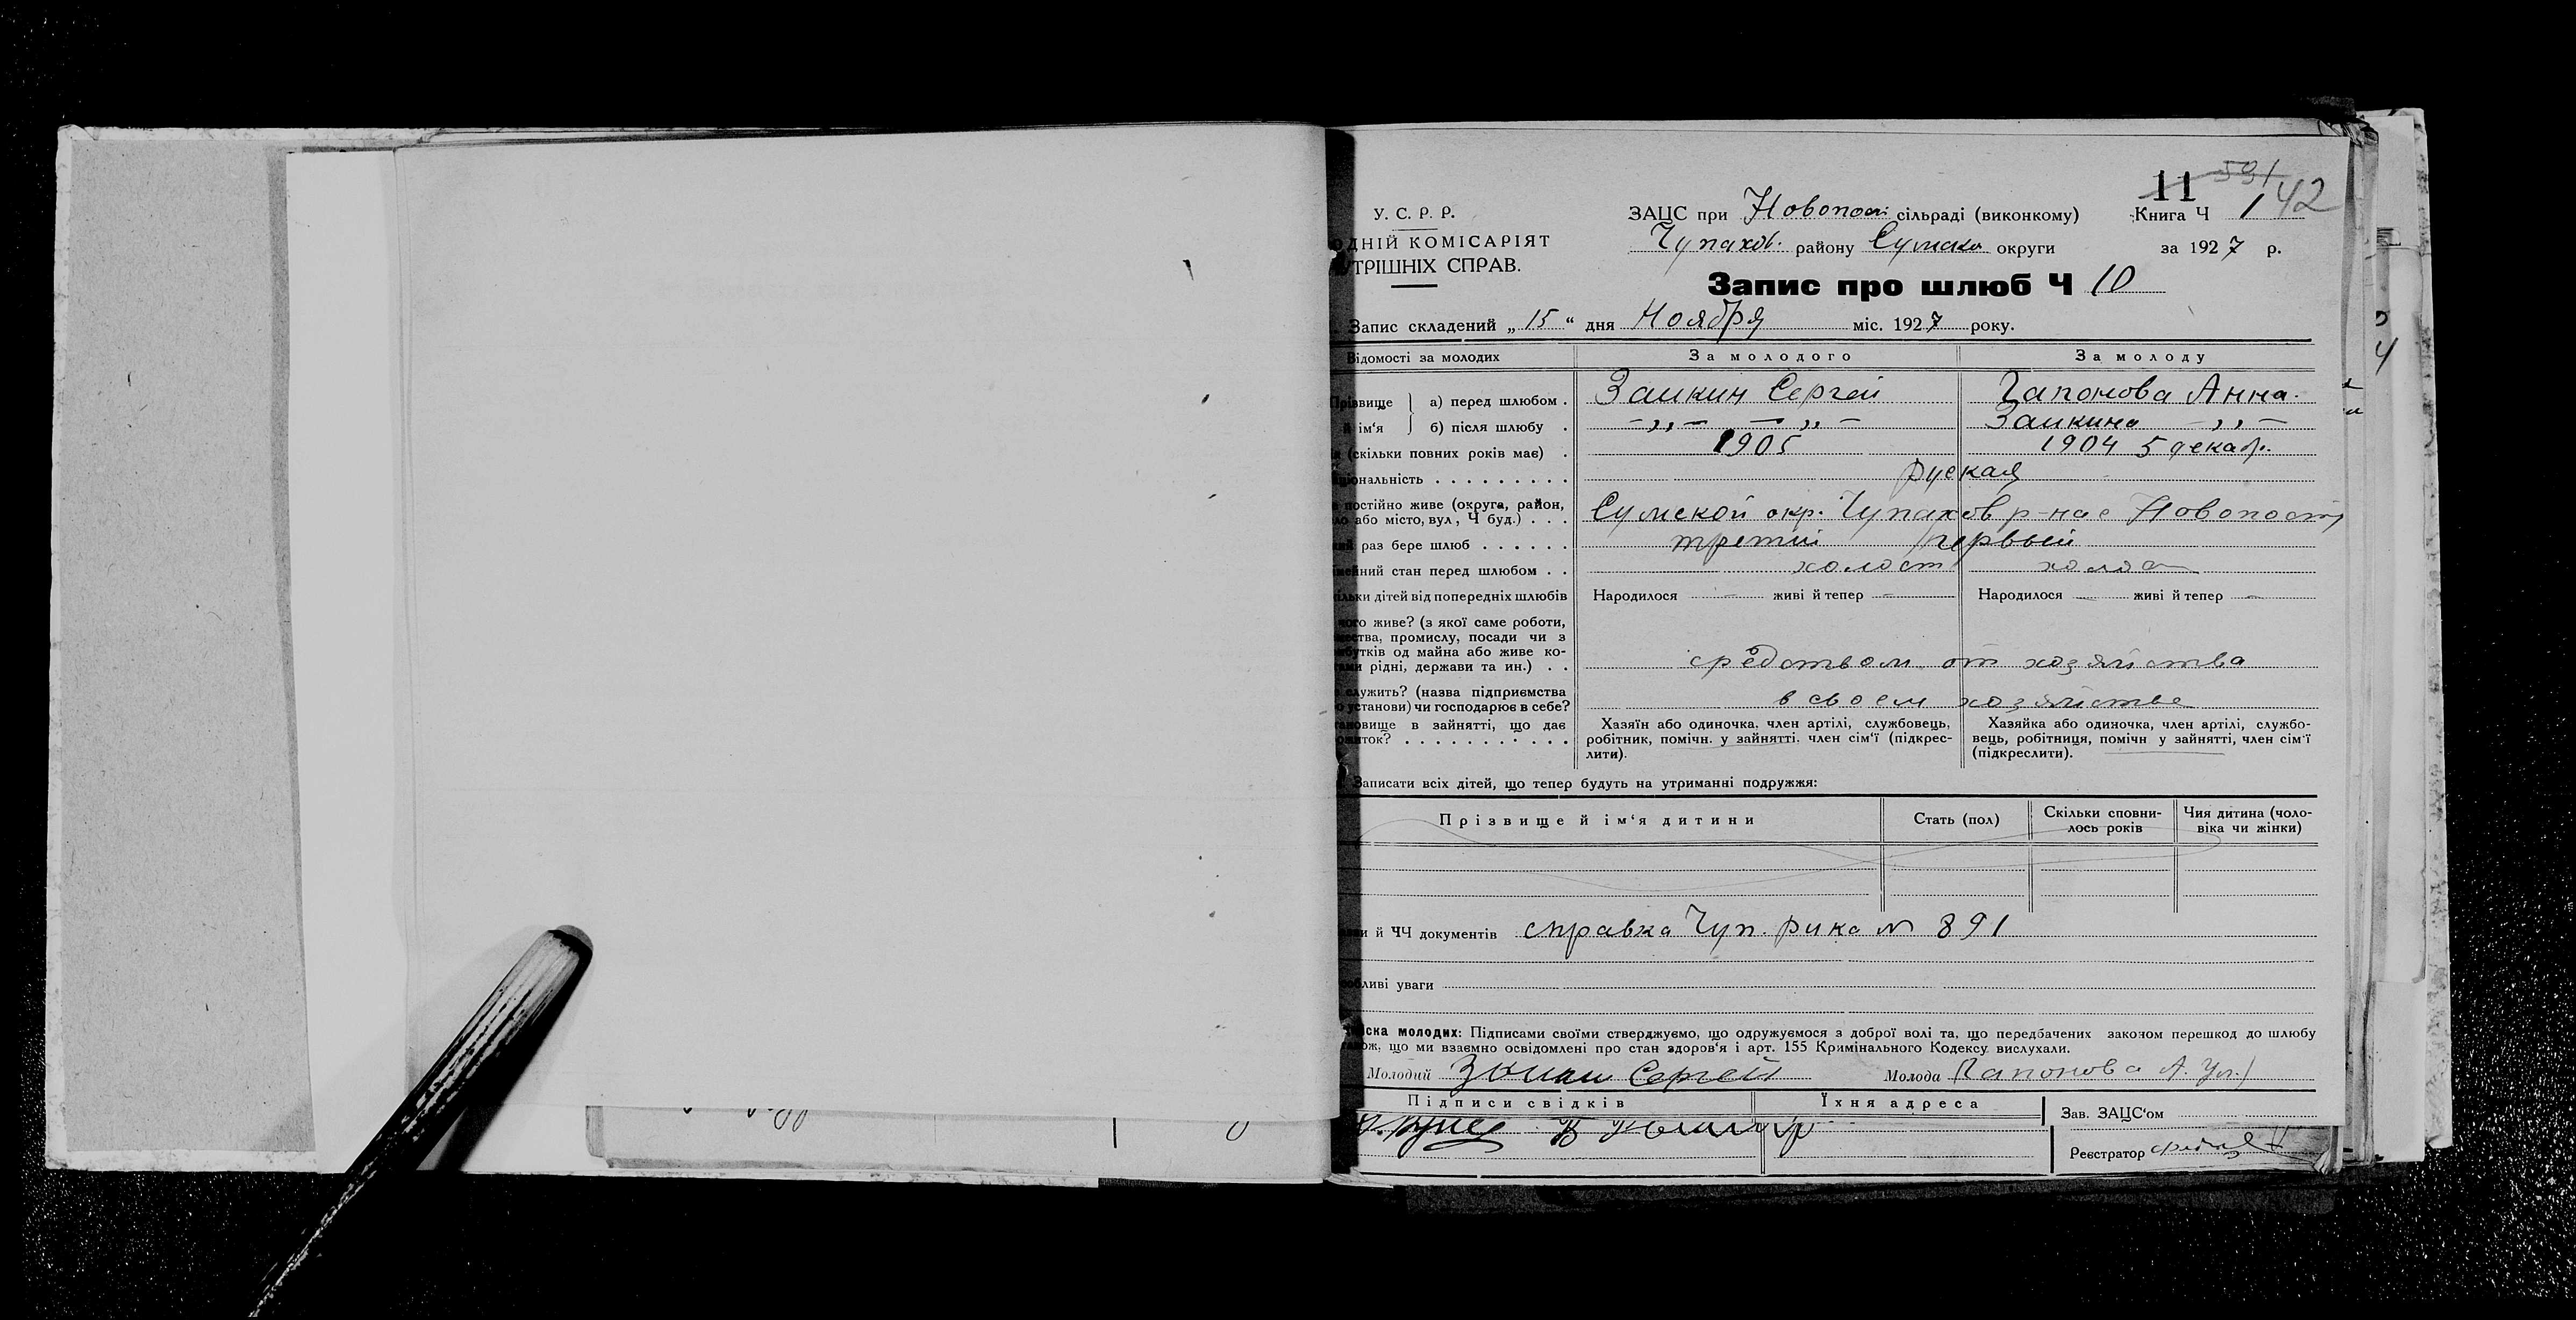 11 591 42
У. С. Р. Р.
ОДНІЙ КОМІСАРІЯТ
УТРІШНІХ СПРАВ.
ЗАЦС при Новопост сільраді (виконкому)
Чупахов. району Сумско округи
Книга Ч 1
за 1927 р.
Запис про шлюб Ч 10
Запис складений „ 15 “ дня Ноября міс. 1927 року.
Відомості за молодих За молодого За молоду
Прізвище а) перед шлюбом . Заикин Сергей Гапонова Анна.
й ім‘я б) після шлюбу . -„- -„- Заикина -„-
(скільки повних років має) . 1905 1904 5 декабр.
ціональність . . . . . . . . . руская
постійно живе (округа, район,
або місто, вул, Ч буд.) . . . Сумской окр. Чупахов р-на с Новопост
раз бере шлюб . . . . . . третий первый
мейний стан перед шлюбом . . холост холост
ільки дітей від попередніх шлюбів Народилося — живі й тепер — Народилося — живі й тепер —
чого живе? (з якої саме роботи,
ества, промислу, посади чи з
бутків од майна або живе ко-
ами рідні, держави та ин.) . . средством от хозяйства
служить? (назва підприємства
установи) чи господарює в себе? в своем хозяйстве
ановище в зайнятті, що дає
житок? . . . . . . . . . . .
Хазяїн або одиночка, член артілі, службовець,
робітник, помічн. у зайнятті, член сім‘ї (підкрес-
лити).
Хазяйка або одиночка, член артілі, службо-
вець, робітниця, помічн у зайнятті, член сім‘ї
(підкреслити).
Записати всіх дітей, що тепер будуть на утриманні подружжя:
Прізвище й ім‘я дитини Стать (пол) Скільки сповни-
лось років Чия дитина (чоло-
віка чи жінки)
й ЧЧ документів справка Чуп. рика № 891
обливі уваги
иска молодих: Підписами своїми стверджуємо, що одружуємося з доброї волі та, що передбачених законом перешкод до шлюбу
кож, що ми взаємно освідомлені про стан здоров‘я і арт. 155 Кримінального Кодексу вислухали.
Молодий Сергей Молода Гапонова А.
Підписи свідків Їхня адреса
Зав. ЗАЦС‘ом
Реєстратор